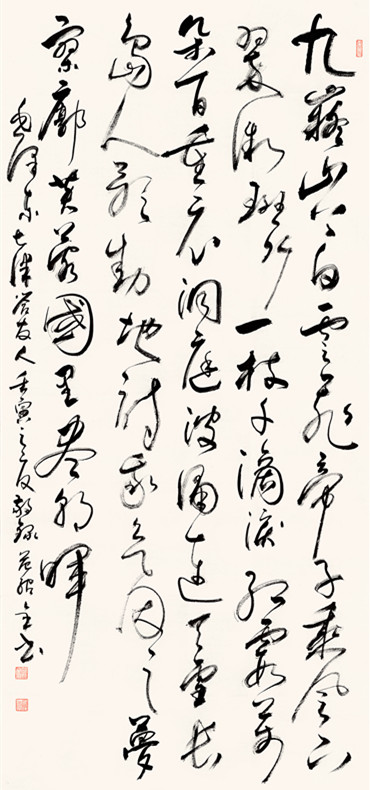 九嶷山上白雲飛帝子乘風下
翠微斑竹一枝千滴淚紅霞萬
朵百重衣洞庭波涌連天雪長
島人歌動地詩我欲因之夢
寥廓芙蓉國里盡朝暉
毛澤東七律答友人壬寅之夏敬錄書